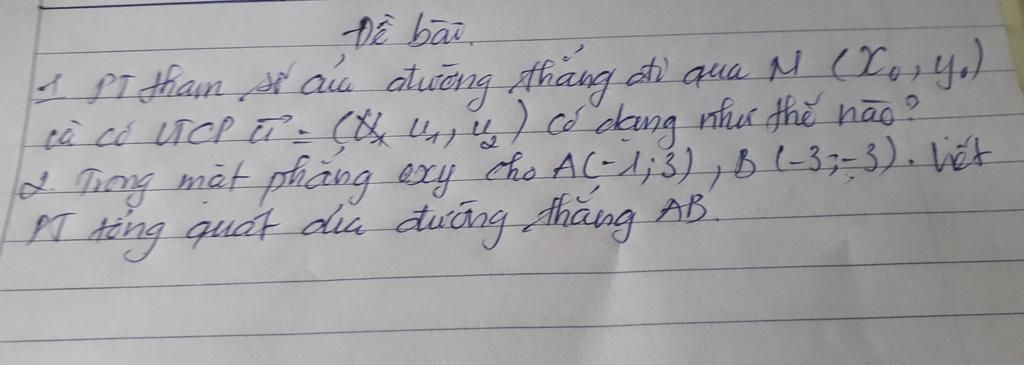 Đề bài.
1 PT tham số của đường thẳng đi qua M (x₀, y₀)
và có VTCP u⃗ = (u₁, u₂) có dạng như thế nào?
2. Trong mặt phẳng oxy cho A(-1; 3), B (-3; -3). Viết
PT tổng quát của đường thẳng AB.